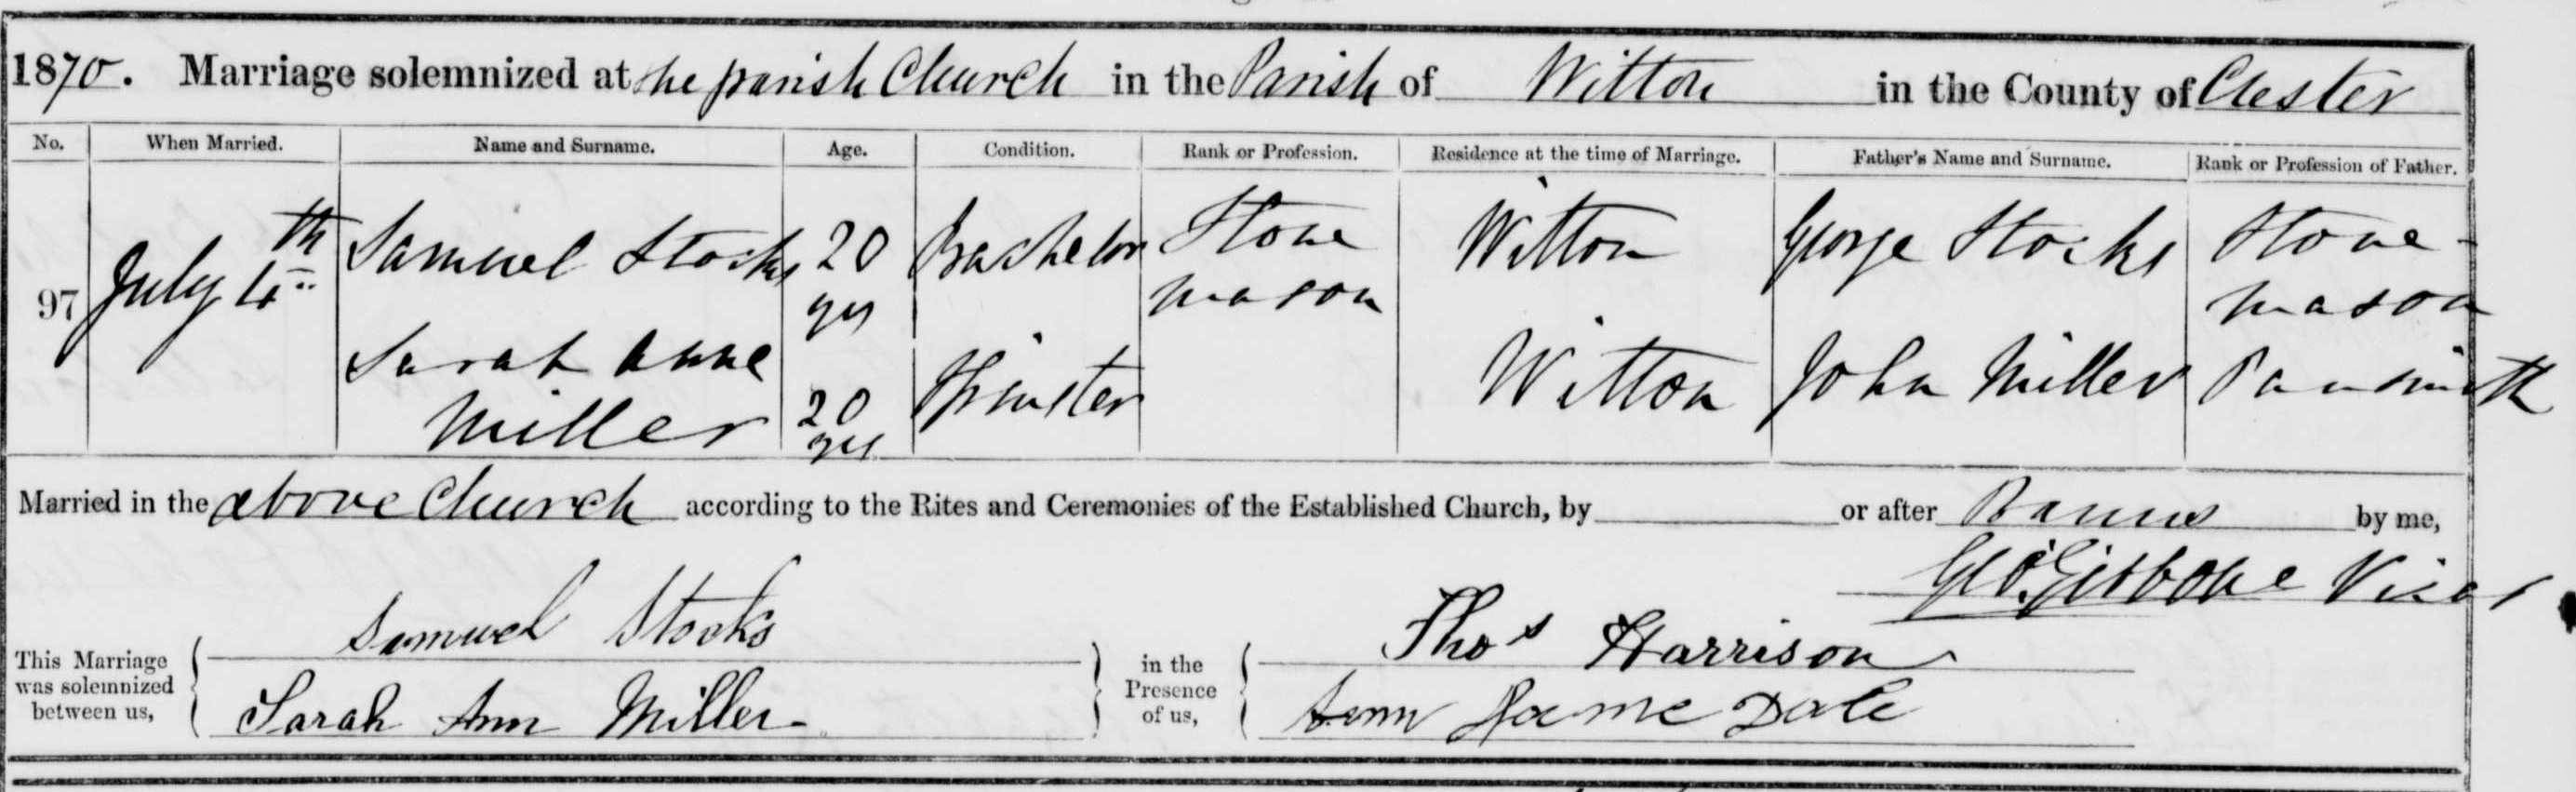 1870. Marriage solemnized at the parish Church in the Parish of Witton in the County of Chester
No. When Married. Name and Surname. Age. Condition. Rank or Profession. Residence at the time of Marriage. Father's Name and Surname. Rank or Profession of Father.
97 July 4th Samuel Stocks 20 yrs Bachelor Stone mason Witton George Stocks Stone-mason
Sarah Anne Miller 20 yrs Spinster Witton John Miller Pansmith
Married in the above Church according to the Rites and Ceremonies of the Established Church, by or after Banns by me,
Geo. Gisborne Vicar
This Marriage was solemnized between us, Samuel Stocks
Sarah Ann Miller
in the Presence of us, Thos Harrison
Ann Dale